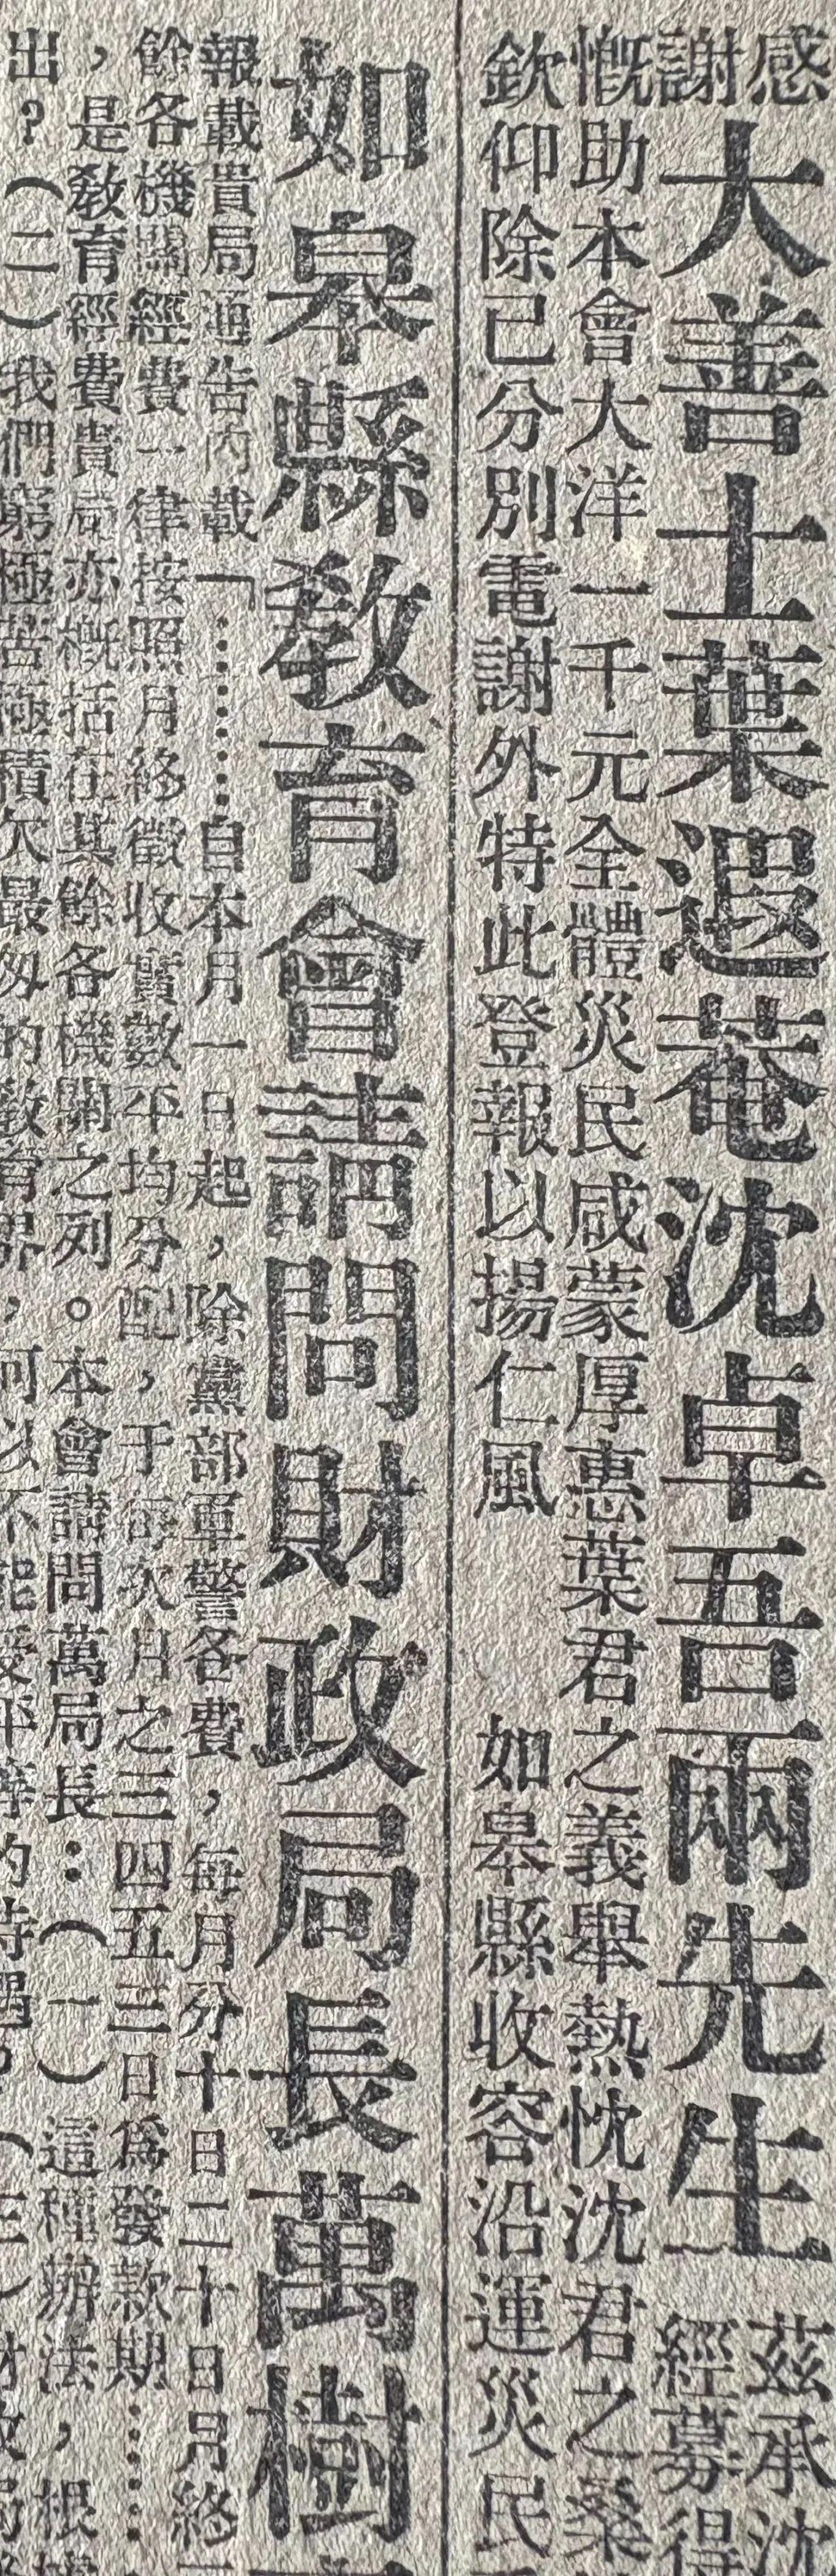 感謝
大善士葉遐菴沈卓吾兩先生
茲承沈
經募得
慨助本會大洋一千元全體災民咸蒙厚惠葉君之義舉熱忱沈君之桑
欽仰除已分別電謝外特此登報以揚仁風 如皋縣收容沿運災民
如皋縣教育會請問財政局長萬樹
報載貴局通告內載「………自本月一日起，除黨部軍警各費，每月分十日二十日月終
餘各機關經費一律按照月終徵收實數平均分配，于每次月之三四五三日爲發款期……
，是教育經費貴局亦概括在其餘各機關之列。本會請問萬局長：（一）這種辦法，根
出？（二）我們窮極苦極積欠最夥的教育界，何以不能受平等的待遇？（三）財政局